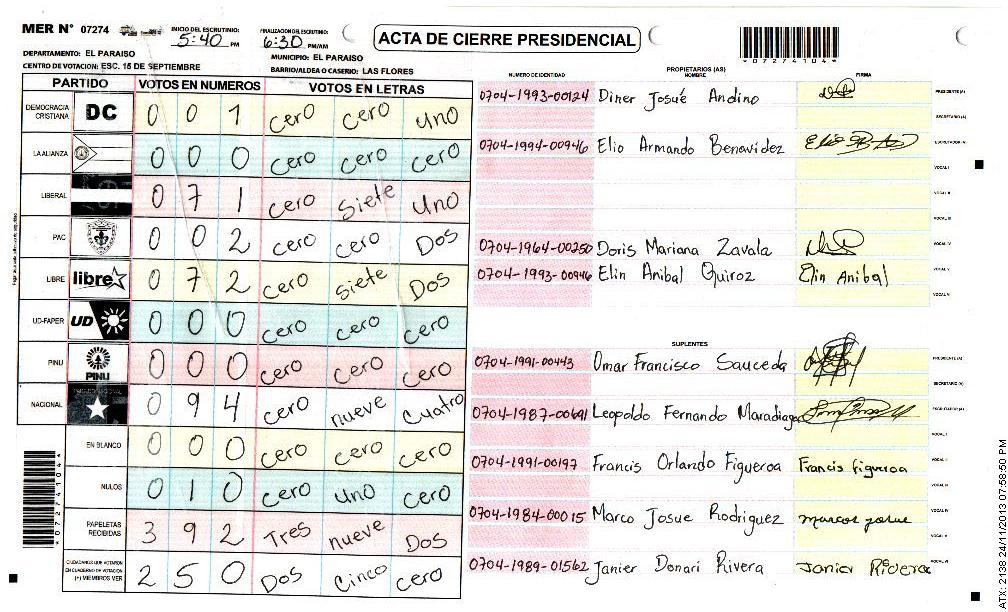 MER N° 07274
INICIO DEL ESCRUTINIO: 5:40 PM
FINALIZACION DEL ESCRUTINIO: 6:30 PM/AM
ACTA DE CIERRE PRESIDENCIAL
*07274104*
DEPARTAMENTO: EL PARAISO
MUNICIPIO: EL PARAISO
CENTRO DE VOTACION: ESC. 15 DE SEPTIEMBRE
BARRIO/ALDEA O CASERIO: LAS FLORES
PARTIDO VOTOS EN NUMEROS VOTOS EN LETRAS
DEMOCRACIA CRISTIANA DC 0 0 1 cero cero uno
LA ALIANZA 0 0 0 cero cero cero
LIBERAL 0 7 1 cero siete uno
PAC 0 0 2 cero cero Dos
LIBRE libre 0 7 2 cero siete Dos
UD-FAPER UD 0 0 0 cero cero cero
PINU PINU 0 0 0 cero cero cero
NACIONAL 0 9 4 cero nueve cuatro
EN BLANCO 0 0 0 cero cero cero
NULOS 0 1 0 cero uno cero
PAPELETAS RECIBIDAS 3 9 2 Tres nueve Dos
CIUDADANOS QUE VOTARON EN CUADERNO DE VOTACION (+) MIEMBROS MER 2 5 0 Dos cinco cero
*07274104*
PROPIETARIOS (AS)
NUMERO DE IDENTIDAD NOMBRE FIRMA
0704-1993-00124 Diner Josué Andino PRESIDENTE (A)
SECRETARIO (A)
0704-1994-00946 Elio Armando Benavidez ESCRUTADOR (A)
VOCAL I
VOCAL II
VOCAL III
0704-1964-00250 Doris Mariana Zavala VOCAL IV
0704-1993-00946 Elin Anibal Quiroz Elin Anibal VOCAL V
VOCAL VI
SUPLENTES
0704-1991-00443 Omar Francisco Sauceda PRESIDENTE (A)
SECRETARIO (A)
0704-1987-00691 Leopoldo Fernando Maradiaga ESCRUTADOR (A)
VOCAL I
0704-1991-00197 Francis Orlando Figueroa Francis figueroa VOCAL II
VOCAL III
0704-1984-00015 Marco Josue Rodriguez marcos josue VOCAL IV
VOCAL V
0704-1989-01562 Janier Donari Rivera Janier Rivera VOCAL VI
ATX: 2138 24/11/2013 07:58:50 PM